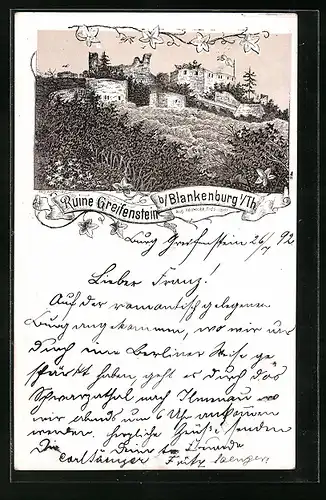 Ruine Greifenstein b/Blankenburg i/Th.
Burg Greifenstein 26/7 92
Lieber Franz!
Auf der romantisch gelegenen
Burg angekommen, wo wir uns
durch eine Berliner Weise ge
stärkt haben geht es durch das
Schwarzathal nach Ilmenau wo
wir abends um 6 Uhr ankommen
werden. herzliche Grüße senden
Dir Deine Freunde
Carl Fritz